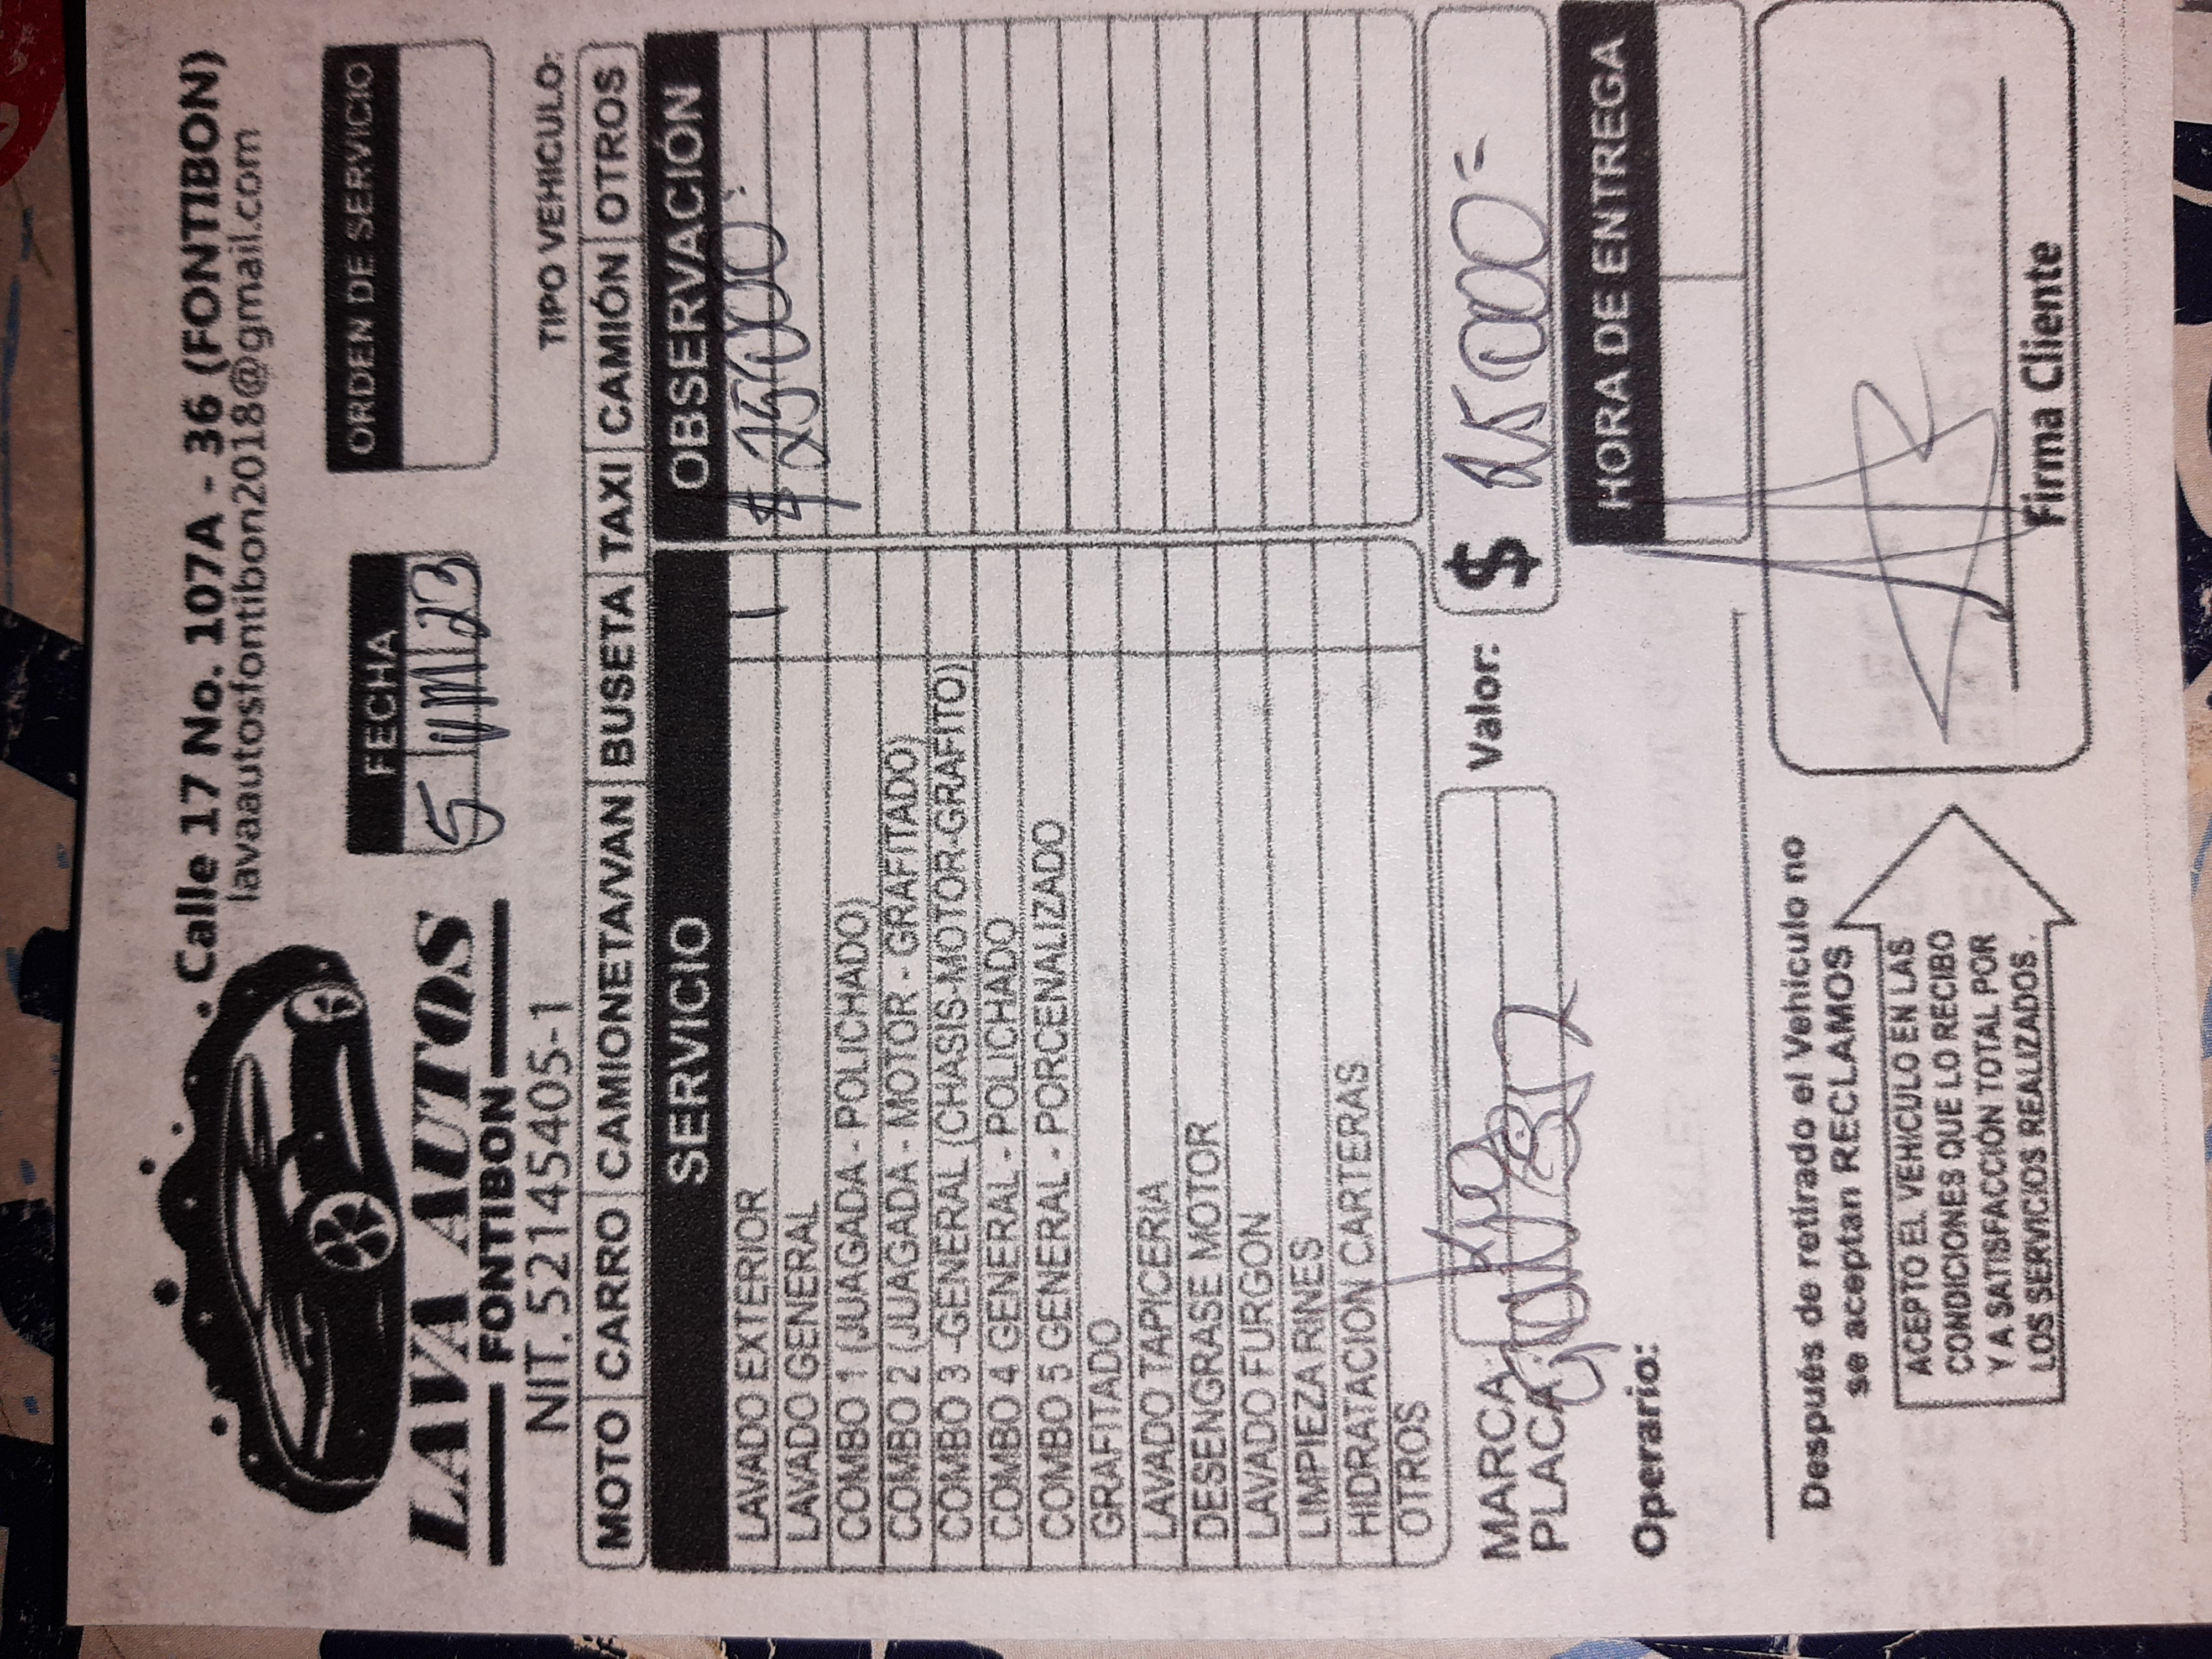 Calle 17 No. 107A - 36 (FONTIBON)
lavaautosfontibon2018@gmail.com
LAVA AUTOS
FONTIBON
NIT. 52145405-1
FECHA
5 23
ORDEN DE SERVICIO
TIPO VEHICULO:
MOTO CARRO CAMIONETA/VAN BUSETA TAXI CAMIÓN OTROS
SERVICIO OBSERVACIÓN
LAVADO EXTERIOR 1 $ 25000
LAVADO GENERAL
COMBO 1 (JUAGADA - POLICHADO)
COMBO 2 (JUAGADA - MOTOR - GRAFITADO)
COMBO 3 -GENERAL (CHASIS-MOTOR-GRAFITO)
COMBO 4 GENERAL - POLICHADO
COMBO 5 GENERAL - PORCENALIZADO
GRAFITADO
LAVADO TAPICERIA
DESENGRASE MOTOR
LAVADO FURGON
LIMPIEZA RINES
HIDRATACION CARTERAS
OTROS
MARCA:
PLACA:
Valor: $ 25000=
Operario:
HORA DE ENTREGA
Después de retirado el Vehiculo no
se aceptan RECLAMOS
ACEPTO EL VEHICULO EN LAS
CONDICIONES QUE LO RECIBO
Y A SATISFACCIÓN TOTAL POR
LOS SERVICIOS REALIZADOS.
Firma Cliente